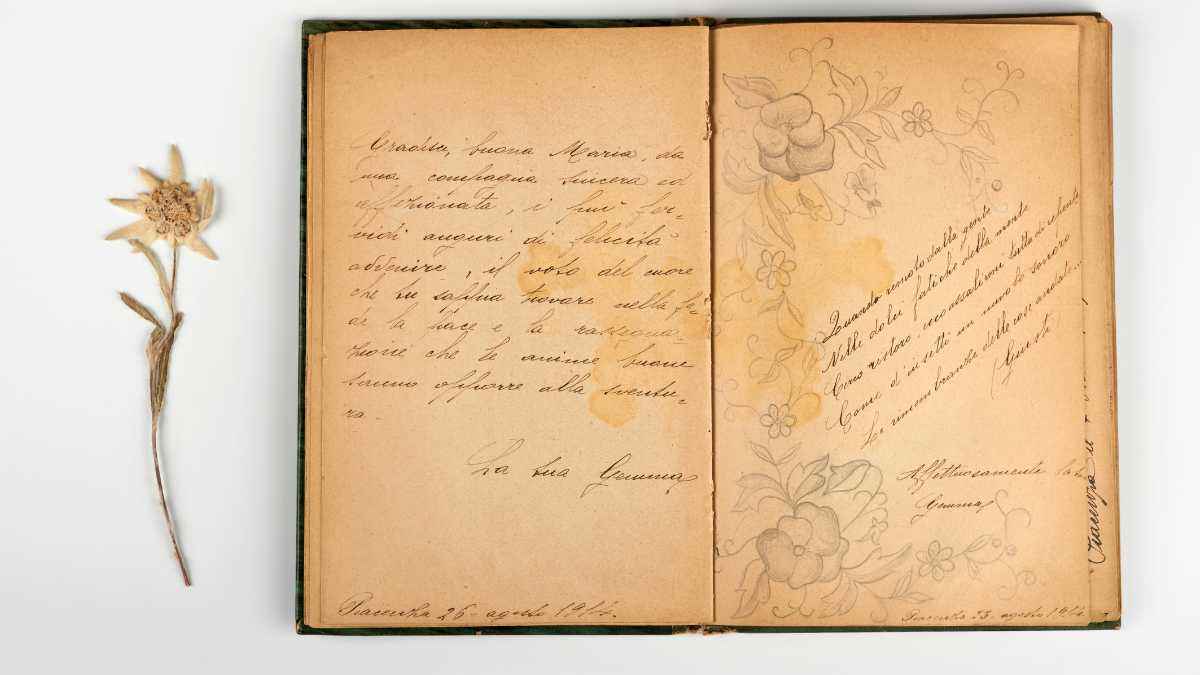 Gradisci, buona Maria, da
una compagna sincera ed
affezionata, i più fer-
vidi auguri di felicità
avvenire, il voto del cuore
che tu sappia trovare nella fe-
de la pace e la rassegna-
zione che le anime buone
sanno opporre alla sventu-
ra.
La tua Gemma
Piacenza 26 - agosto 1914.
Quando remoto dalla gente
Nelle dolci fatiche della mente
Cerco ristoro: ecco assalirmi tutta di repente
Come d'insetti un nuvolo sonoro
Le rimembranze delle cose andate...
(Giusti)
Affettuosamente
Gemma
Piacenza 23 - agosto 1914.
Piacenza